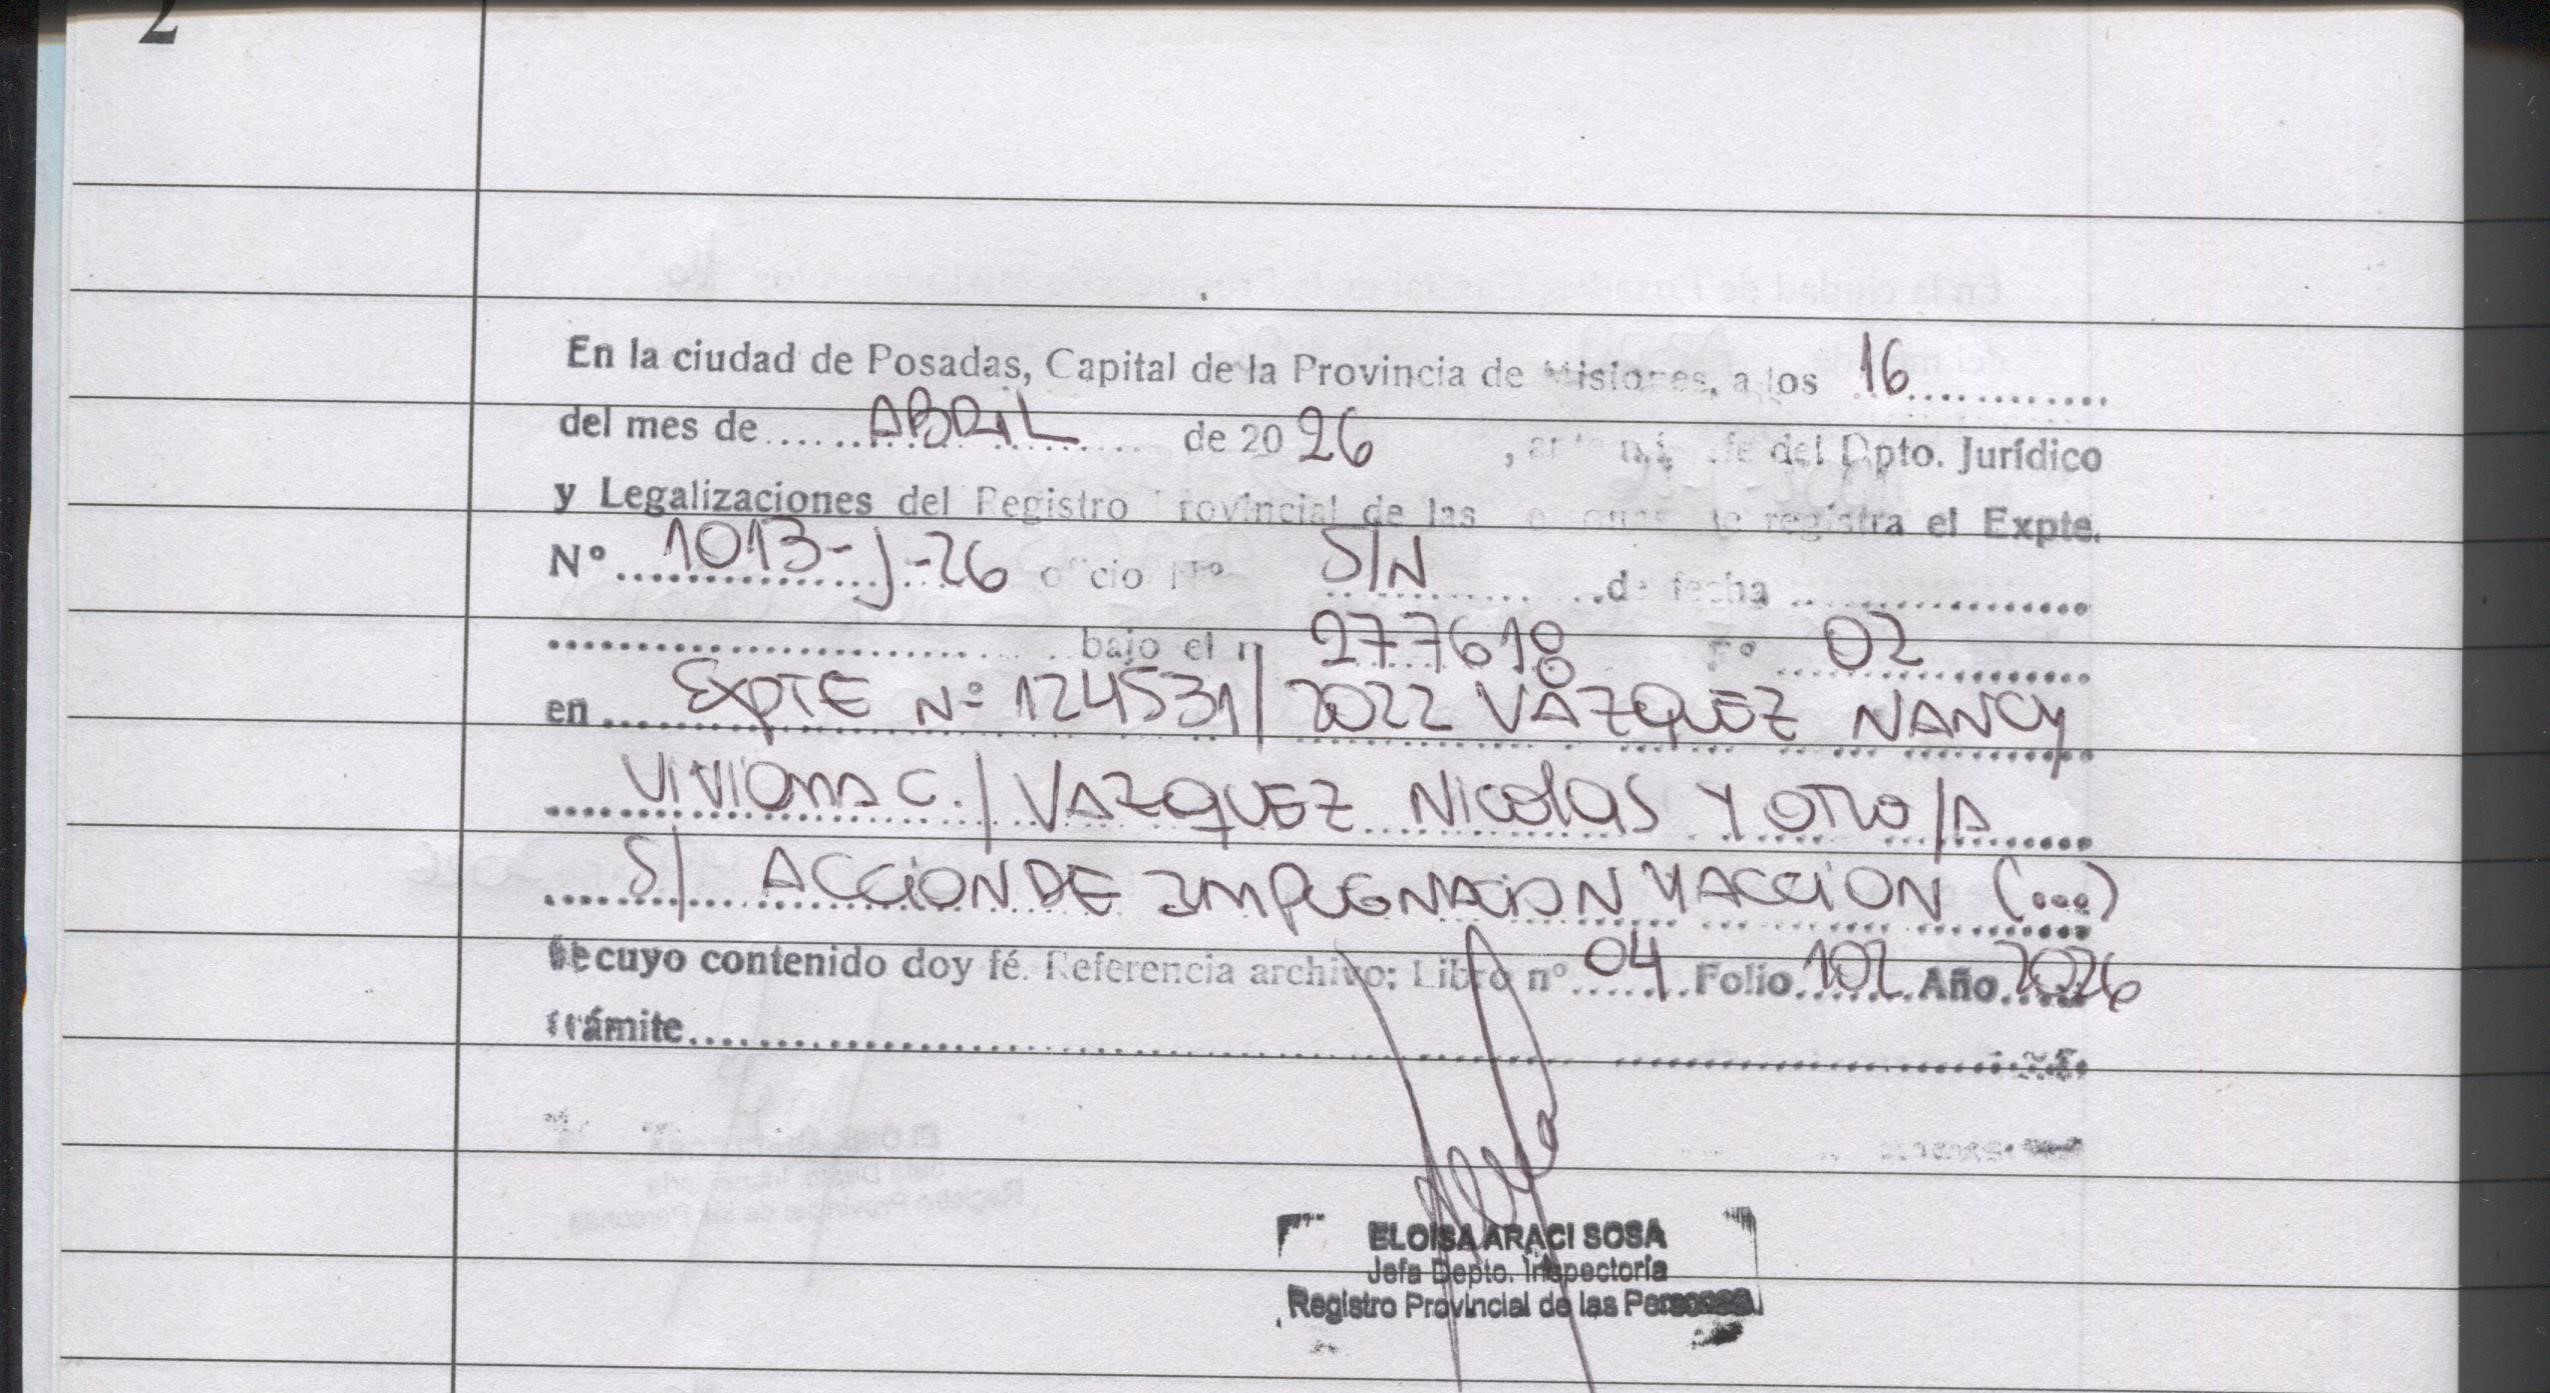 2
En la ciudad de Posadas, Capital de la Provincia de Misiones, a los 16
del mes de ABRIL de 2026, ante mí Jefe del Dpto. Jurídico
y Legalizaciones del Registro Provincial de las Personas se registra el Expte.
Nº 1013-J-26 oficio Nº S/N de fecha
bajo el n 277618 Fº 02
en EXPTE Nº 124531/2022 VAZQUEZ NANCY
VIVIANA C./ VAZQUEZ NICOLAS Y OTRO/A
S/ ACCION DE IMPUGNACION Y ACCION (...)
de cuyo contenido doy fé. Referencia archivo: Libro nº 04 Folio 102 Año 2026
trámite
ELOISA ARACI SOSA
Jefa Depto. Inspectoría
Registro Provincial de las Personas